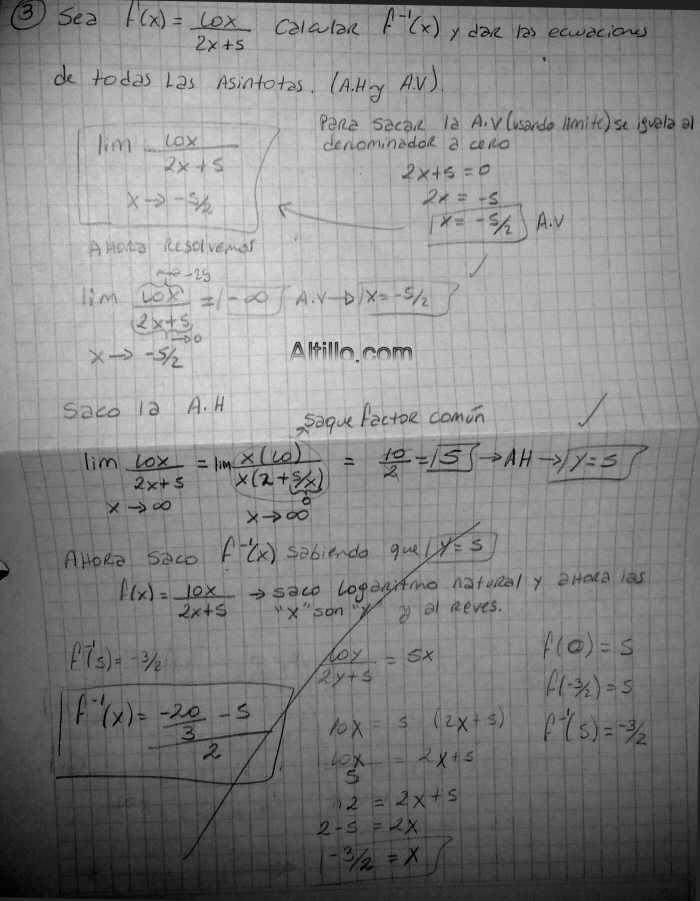 ③ Sea f(x) = 10x / 2x+5 Calcular f⁻¹(x) y dar las ecuaciones
de todas las Asintotas. (A.H y A.V).
Para sacar la A.V (usando limite) se iguala al
denominador a cero
2x+5 = 0
2x = -5
x = -5/2 A.V
lim 10x / 2x+5
x → -5/2
Ahora Resolvemos
→ -25
lim 10x / 2x+5 = -∞ A.V → x = -5/2
→ 0
x → -5/2
Altillo.com
Saco la A.H
saque factor común
lim 10x / 2x+5 = lim x(10) / x(2+5/x) = 10/2 = 5 → AH → y = 5
0
x → ∞ x → ∞
Ahora saco f⁻¹(x) sabiendo que y = 5
f(x) = 10x / 2x+5 → saco logaritmo natural y ahora las
"x" son "y" y al reves.
f⁻¹(5) = -3/2
f⁻¹(x) = -20/3 - 5 / 2
10y / 2y+5 = 5x
10x = 5 (2x+5)
10x / 5 = 2x+5
2 = 2x+5
2-5 = 2x
-3/2 = x
f(0) = 5
f(-3/2) = 5
f⁻¹(5) = -3/2